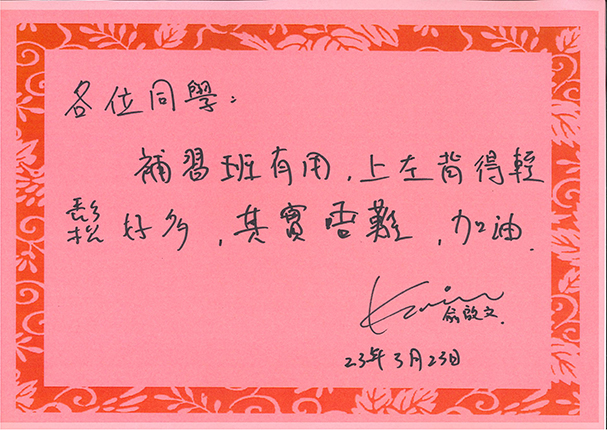 各位同學：
補習班有用，上左背得輕
鬆好多，其實唔難，加油．
俞啟文．
23年3月23日